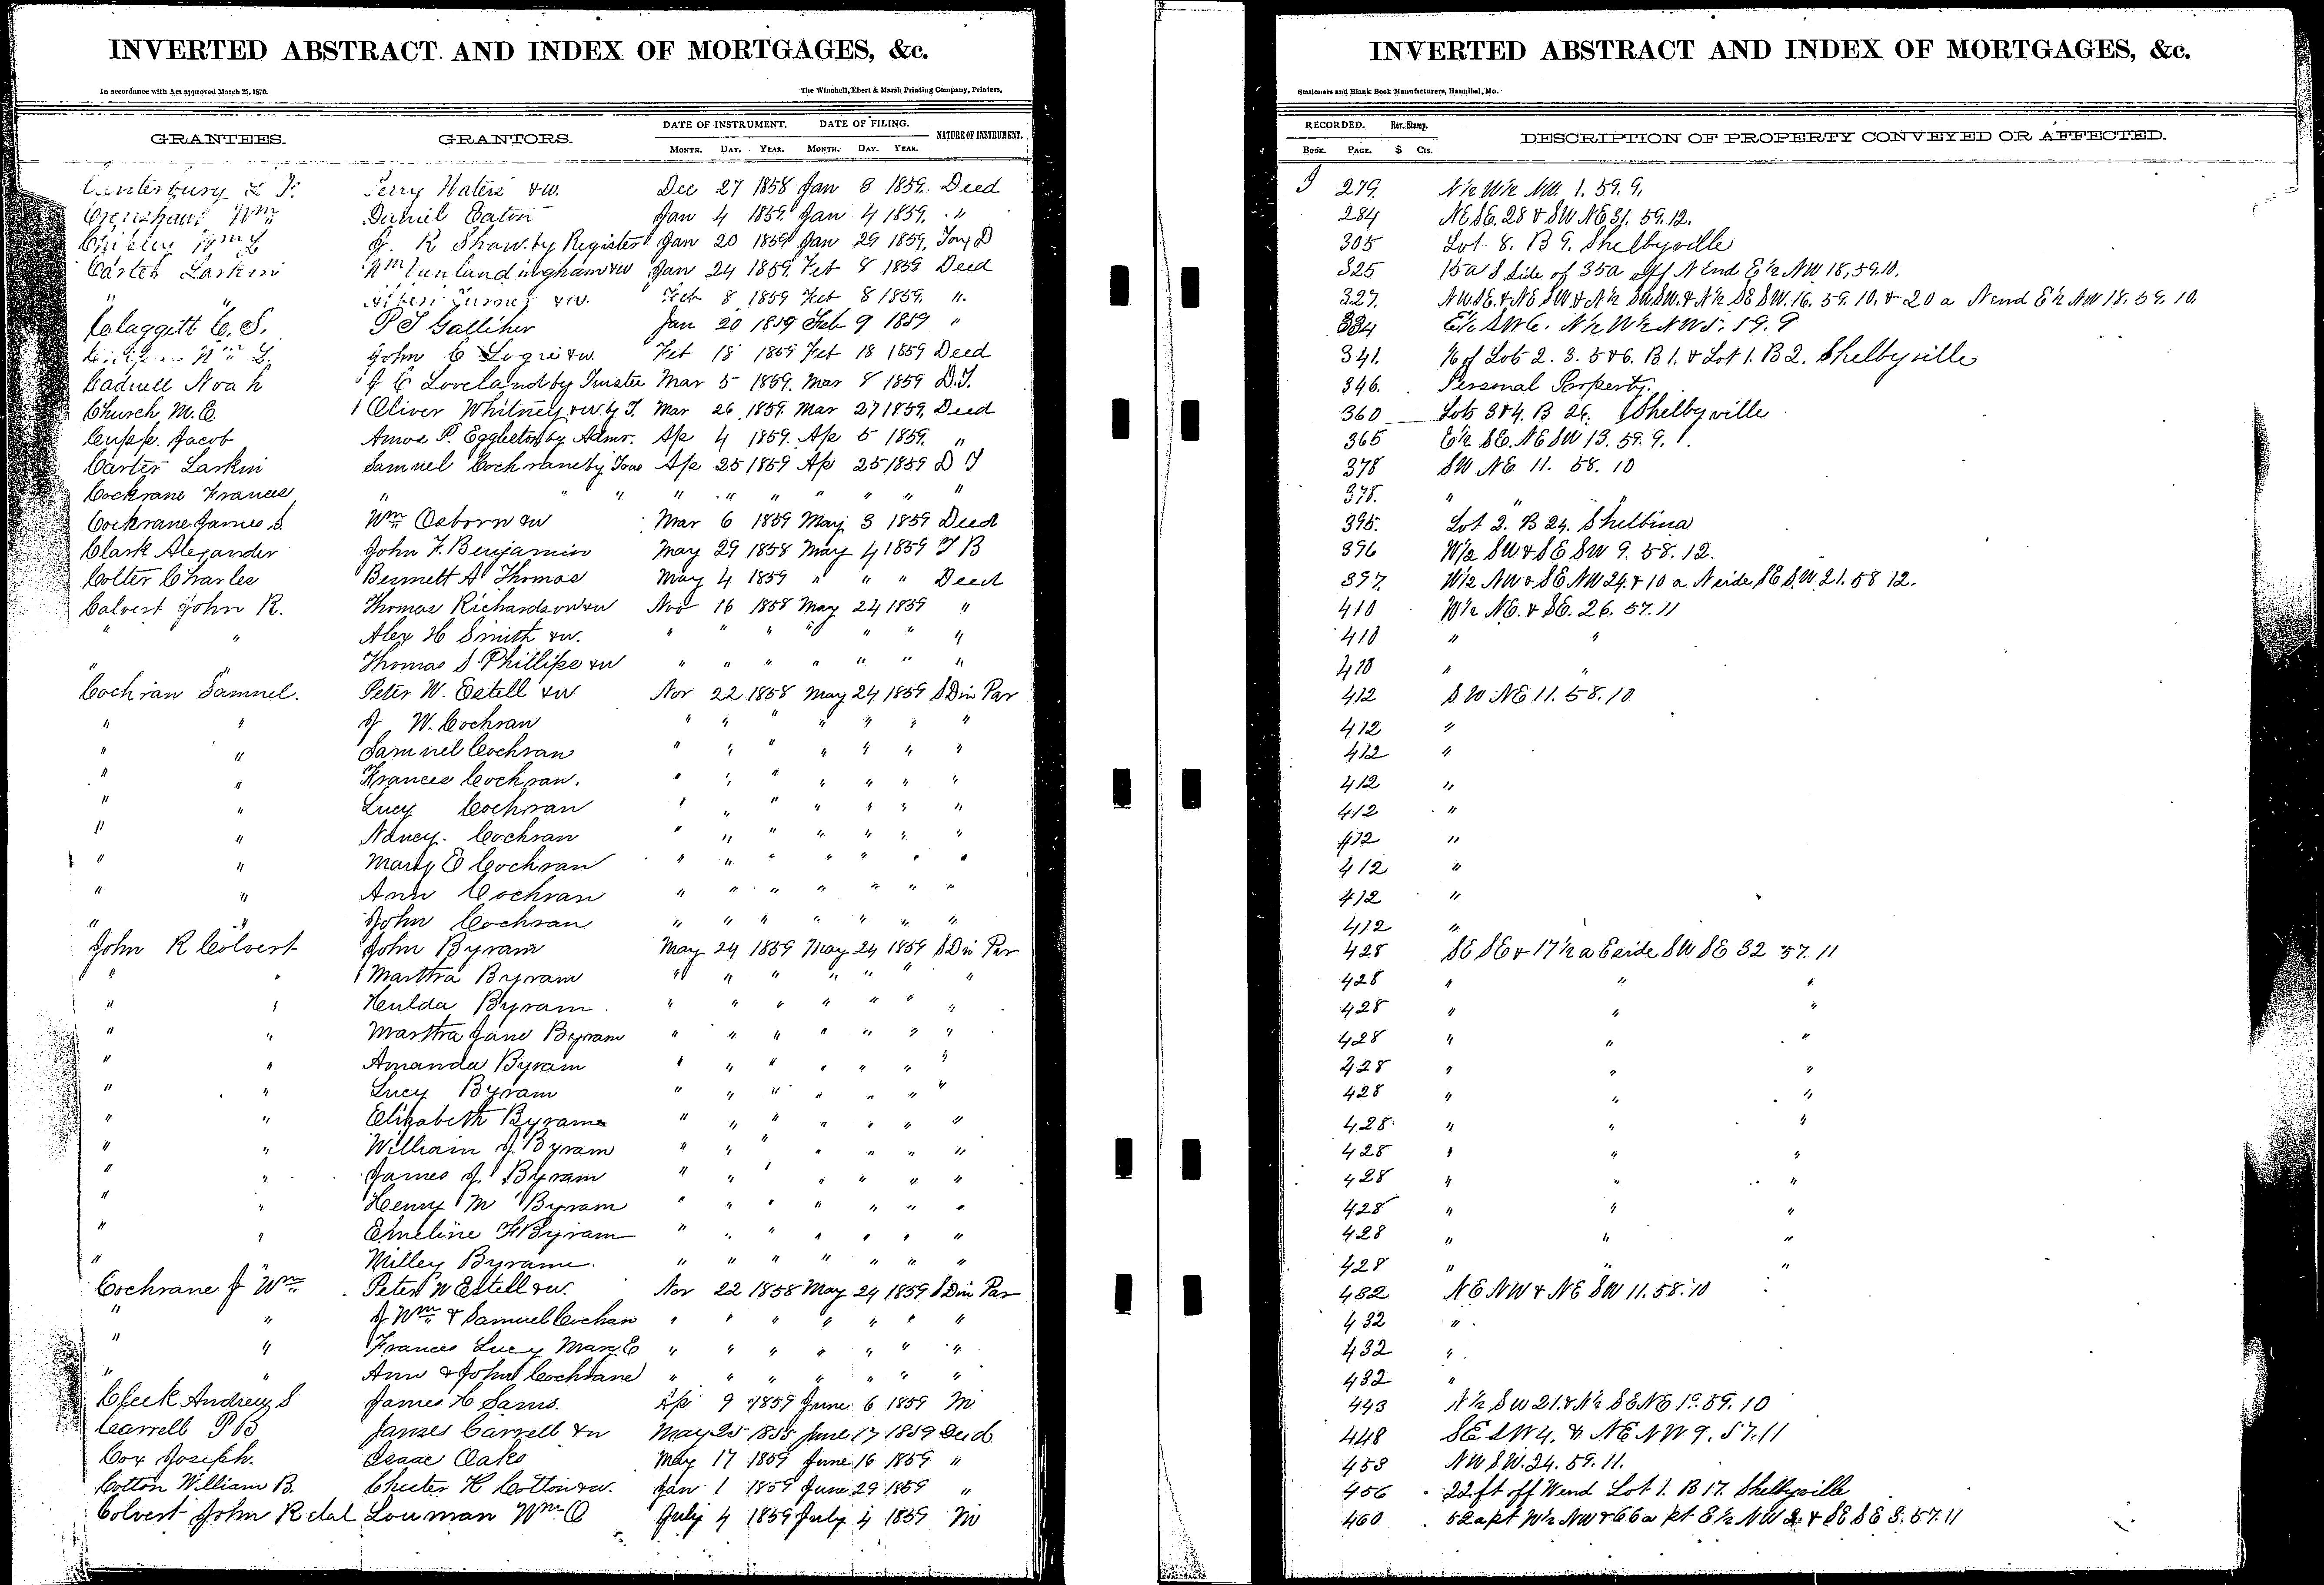 INVERTED ABSTRACT AND INDEX OF MORTGAGES, &c.
In accordance with Act approved March 25, 1870. The Winchell, Ebert & Marsh Printing Company, Printers,
GRANTEES. GRANTORS. DATE OF INSTRUMENT. DATE OF FILING. NATURE OF INSTRUMENT.
MONTH. DAY. YEAR. MONTH. DAY. YEAR.
Canterbury Perry Waters &w. Dec 27 1858 Jan 8 1859. Deed
Crenshaw Wm Daniel Eaton Jan 4 1859 Jan 4 1859. "
Wm L J. R Shaw. by Register Jan 20 1859 Jan 29 1859,
Carter Larkin Wm Vanlandingham &w Jan 24 1859. Feb 8 1859 Deed
" " Albert Turner &w. Feb 8 1859 Feb 8 1859. "
Claggett C. S. P S Galliher Jan 20 1859 Feb 9 1859 "
Wm L. John C &w. Feb 18 1859 Feb 18 1859 Deed
Cadwell Noah J C Loveland by Trustee Mar 5 1859. Mar 8 1859 D.T.
Church M. E. Oliver Whitney &w. by T. Mar 26 1859. Mar 27 1859. Deed
Cupp. Jacob Amos P. Eggleton by Admr. Ap 4 1859. Ap 5 1859. "
Carter Larkin Samuel Cochrane by Ap 25 1859 Ap 25 1859 D T
Cockrane Frances " " " " " " " " " "
Cockrane James S. Wm Osborn &w Mar 6 1859 May 3 1859 Deed
Clark Alexander John F. Benjamin May 29 1858 May 4 1859 T B
Colter Charles Bennett A Thomas May 4 1859 " " " Deed
Calvert John R. Thomas Richardson &w Nov 16 1858 May 24 1859 "
" " Alex H Smith &w. " " " " " " "
" " Thomas S Phillips &w " " " " " " "
Cochran Samuel. Peter W. Estell &w Nov 22 1858 May 24 1859 S D in Par
" " J W. Cochran " " " " " " "
" " Samuel Cochran " " " " " " "
" " Frances Cochran. " " " " " " "
" " Lucy Cochran " " " " " " "
" " Nancy. Cochran " " " " " " "
" " Mary E Cochran " " " " " " "
" " Ann Cochran " " " " " " "
" " John Cochran " " " " " " "
John R Colvert John Byram May 24 1859 May 24 1859 S D in Par
" " Martha Byram " " " " " " "
" " Hulda Byram " " " " " " "
" " Martha Jane Byram " " " " " " "
" " Amanda Byram " " " " " " "
" " Lucy Byram " " " " " " "
" " Elizabeth Byram " " " " " " "
" " William J. Byram " " " " " " "
" " James J. Byram " " " " " " "
" " Henry M Byram " " " " " " "
" " Emeline F Byram " " " " " " "
" " Milley Byram. " " " " " " "
Cochrane J Wm Peter W Estell &w. Nov 22 1858 May 24 1859 S D in Par
" " J Wm & Samuel Cochan " " " " " " "
" " Frances Lucy Mary E " " " " " " "
" " Ann & John Cochrane " " " " " " "
Cleek Andrew S James C Sams. Ap 9 1859 June 6 1859 M
Carrell P B James Carrell &w May 25 1855 June 17 1859 Deed
Cox Joseph. Isaac Oaks May 17 1859 June 16 1859 "
Cotton William B. Chester K Cotton &w. Jan 1 1859 June 29 1859 "
Colvert John R etal Louman Wm O July 4 1859 July 4 1859 M
INVERTED ABSTRACT AND INDEX OF MORTGAGES, &c.
Stationers and Blank Book Manufacturers, Hannibal, Mo.
RECORDED. Rev. Stamp. DESCRIPTION OF PROPERTY CONVEYED OR AFFECTED.
BOOK. PAGE. $ CTS.
J 279. N½ W½ NW. 1. 59. 9.
284 NE SE. 28 & SW NE 31. 59. 12.
305 Lot 8. B 9. Shelbyville
325 15a S Side of 35a off N End E½ NW 18, 59. 10.
327. NW SE. & NE SW & N½ SW SW. & N½ SE SW. 16. 59. 10. & 20 a N end E½ NW 18. 59. 10.
334 E½ SW 6. N½ W½ NW 5. 59. 9
341. 1/6 of Lots 2. 3. 5 & 6. B 1. & Lot 1. B 2. Shelbyville
346. Personal Property.
360 Lots 3 & 4. B 26. Shelbyville
365 E½ SE. NE SW 13. 59. 9.
378 SW NE 11. 58. 10
378. " " "
395. Lot 2. B 24. Shelbina
396 W½ SW & SE SW 9. 58. 12.
397. W½ NW & SE NW 24. & 10 a N side SE SW 21. 58 12.
410 W½ NE. & SE. 26. 57. 11
410 " "
410 " "
412 SW NE 11. 58. 10
412 "
412 "
412 "
412 "
412 "
412 "
412 "
412 "
428 SE SE & 17½ a E side SW SE 32 57. 11
428 " " "
428 " " "
428 " " "
428 " " "
428 " " "
428 " " "
428 " " "
428 " " "
428 " " "
428 " " "
428 " " "
432 NE NW & NE SW 11. 58. 10
432 "
432 "
432 "
443 N½ SW 21. & N½ SE NE 19. 59. 10
448 SE SW 4. & NE NW 9. 57. 11
453 NW SW. 24. 59. 11.
456 22 ft off W end Lot 1. B 17. Shelbyville
460 52a pt W½ NW & 66a pt E½ NW & SE SE 8. 57. 11